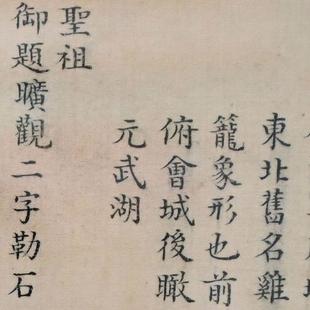 東北舊名雞
籠象形也前
俯會城後瞰
元武湖
聖祖
御題曠觀二字勒石